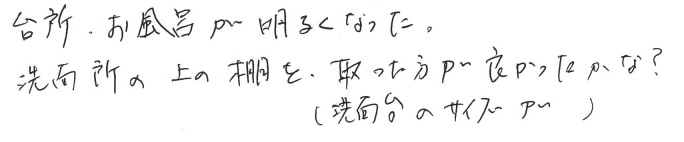 台所・お風呂が明るくなった。
洗面所の上の棚を、取った方が良かったかな?
(洗面台のサイズが     )